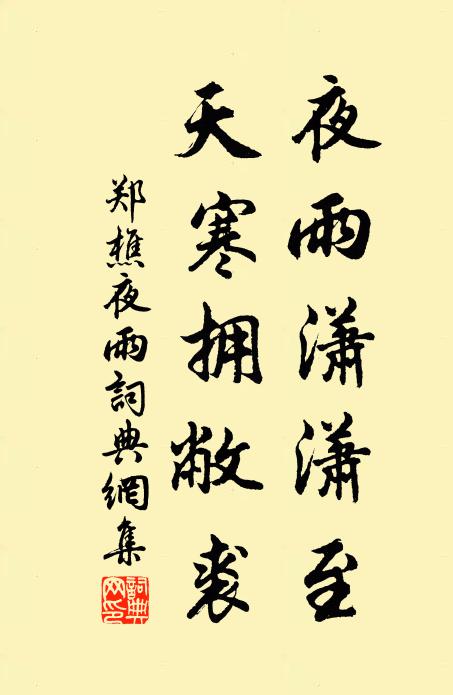 夜雨瀟瀟至
天寒拥敝裘
郑樵夜雨詞典網集
詞典網印